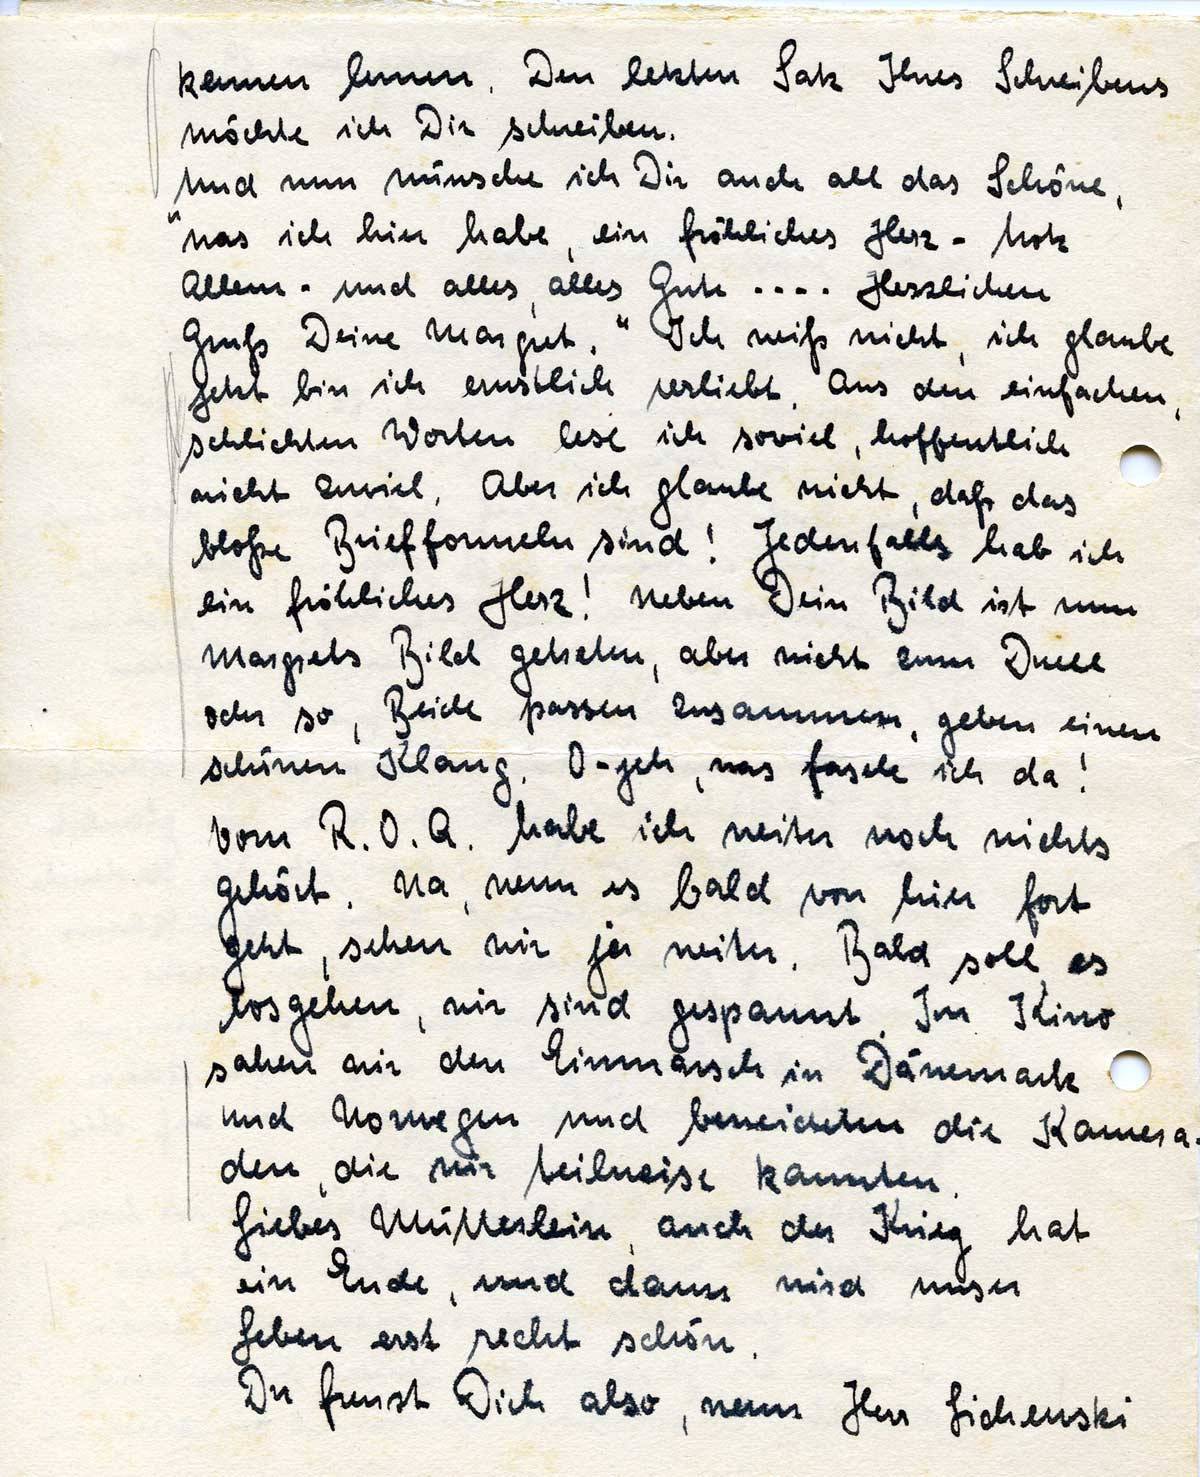 kennen lernen. Den letzten Satz Ihres Schreibens
möchte ich Dir schreiben.
Und nun wünsche ich Dir auch all das Schöne,
"was ich hier habe, ein fröhliches Herz - trotz
Allem - und alles, alles Gute .... Herzlichen
Gruß Deine Margret." Ich weiß nicht, ich glaube
jetzt bin ich ernstlich verliebt. Aus den einfachen,
schlichten Worten lese ich soviel, hoffentlich
nicht zuviel. Aber ich glaube nicht, daß das
bloße Briefformeln sind! Jedenfalls hab ich
ein fröhliches Herz! Neben Dein Bild ist nun
Margrets Bild getreten, aber nicht zum Duell
oder so, Beide passen zusammen, geben einen
schönen Klang. O-jeh, was fasele ich da!
Vom R.O.A. habe ich weiter noch nichts
gehört. Na, wenn es bald von hier fort
geht, sehen wir ja weiter. Bald soll es
losgehen, wir sind gespannt. Im Kino
sahen wir den Einmarsch in Dänemark
und Norwegen und beneideten die Kamera-
den, die wir teilweise kannten.
Liebes Mütterlein, auch der Krieg hat
ein Ende, und dann wird unser
Leben erst recht schön.
Du freust Dich also, wenn Herr Lichenski